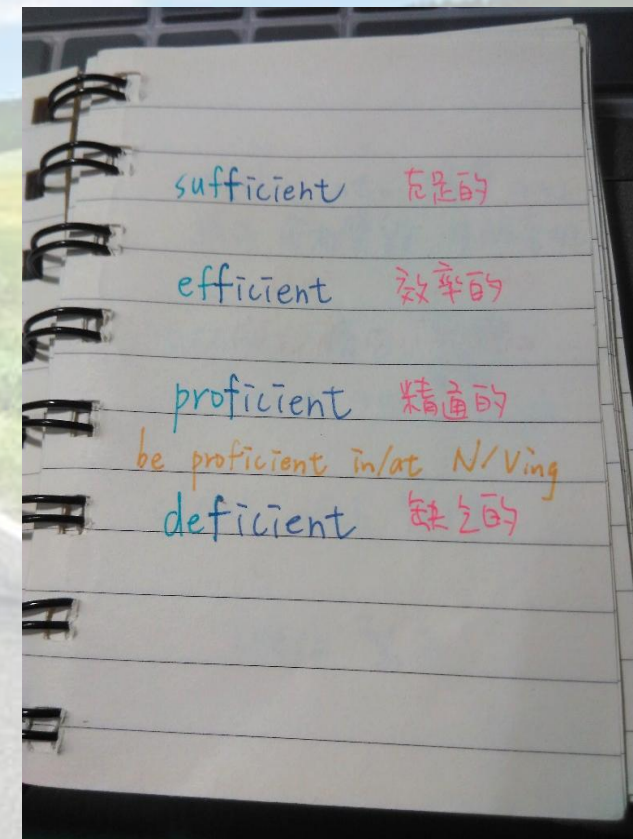 sufficient 充足的
efficient 效率的
proficient 精通的
be proficient in/at N/Ving
deficient 缺乏的